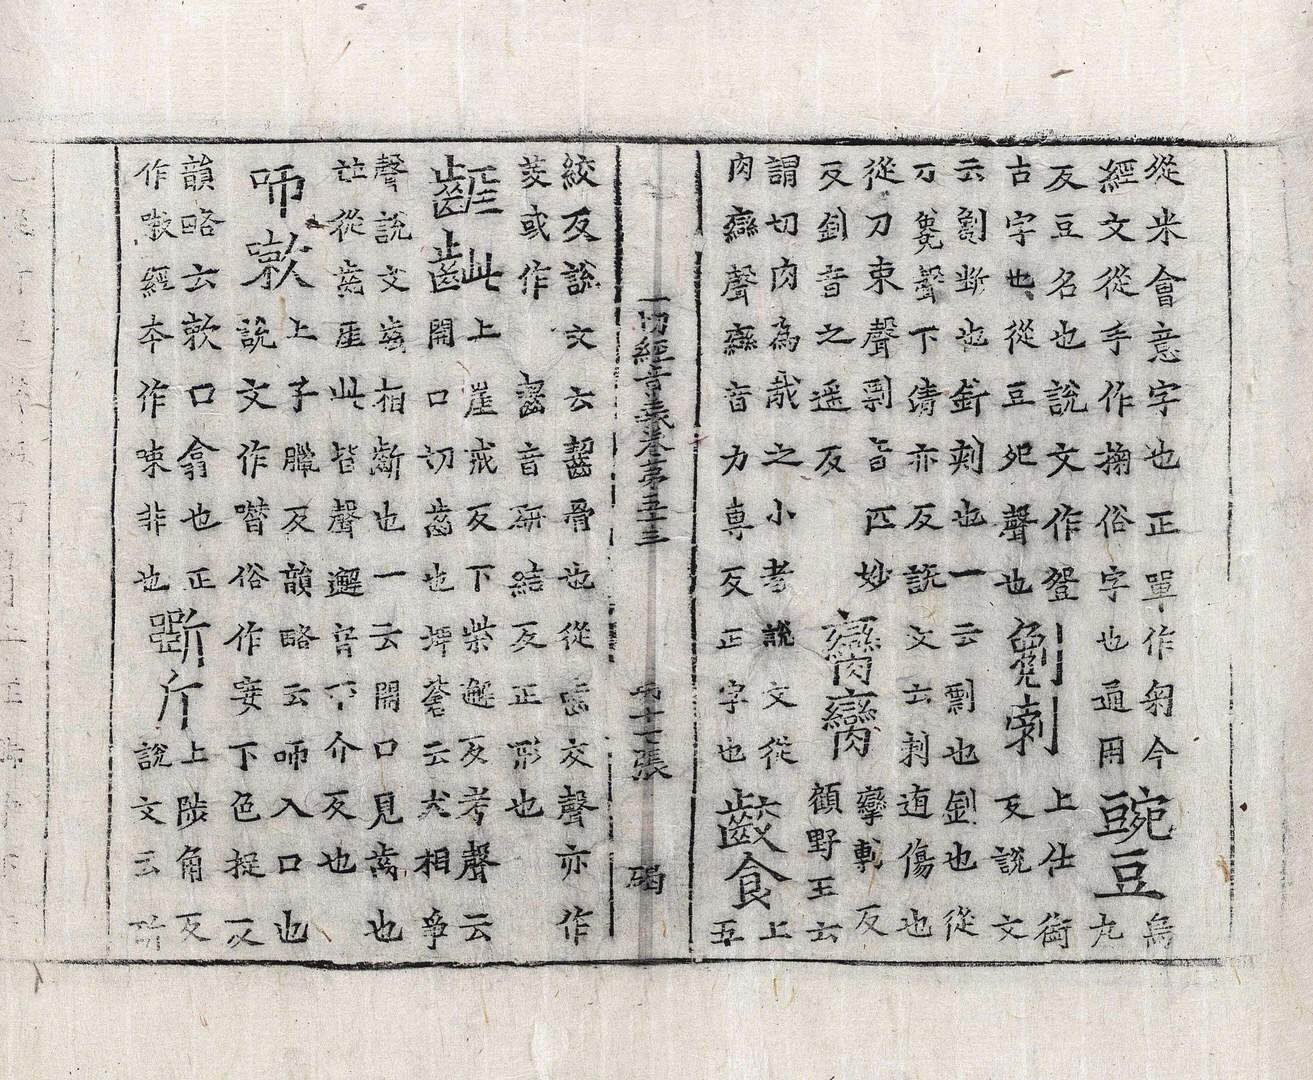 從米會意字也正單作匊今
經文從手作掬俗字也通用
豌豆
烏
九
反豆名也說文作䝄
古字也從豆夗聲也
劖刺
上仕銜
反說文
云劖斷也釿刺也一云剽也釗也從
刀毚聲下倩亦反說文云刺直傷也
從刀朿聲剽音匹妙
反釗音之遥反
臠臠
攣軟反
顧野王云
謂切肉為胾之小者說文從
肉䜌聲䜌音力專反正字也
齩食
上
五
一切經音義卷第五十三 第十七張 碣
絞反說文云齧骨也從齒交聲亦作
或作 齧音研結反正形也
齜
上崖戒反下柴邂反考聲云
開口切齒也埤蒼云犬相爭
聲說文齒相齗也一云開口見齒也
竝從齒厓此皆聲邂音下介反也
咂欶
上子臘反韻略云咂入口也
說文作噆俗作唼下色捉反
韻略云欶口翕也正
作嗽經本作㖩非也
斲斤
上陟角反
說文云斫